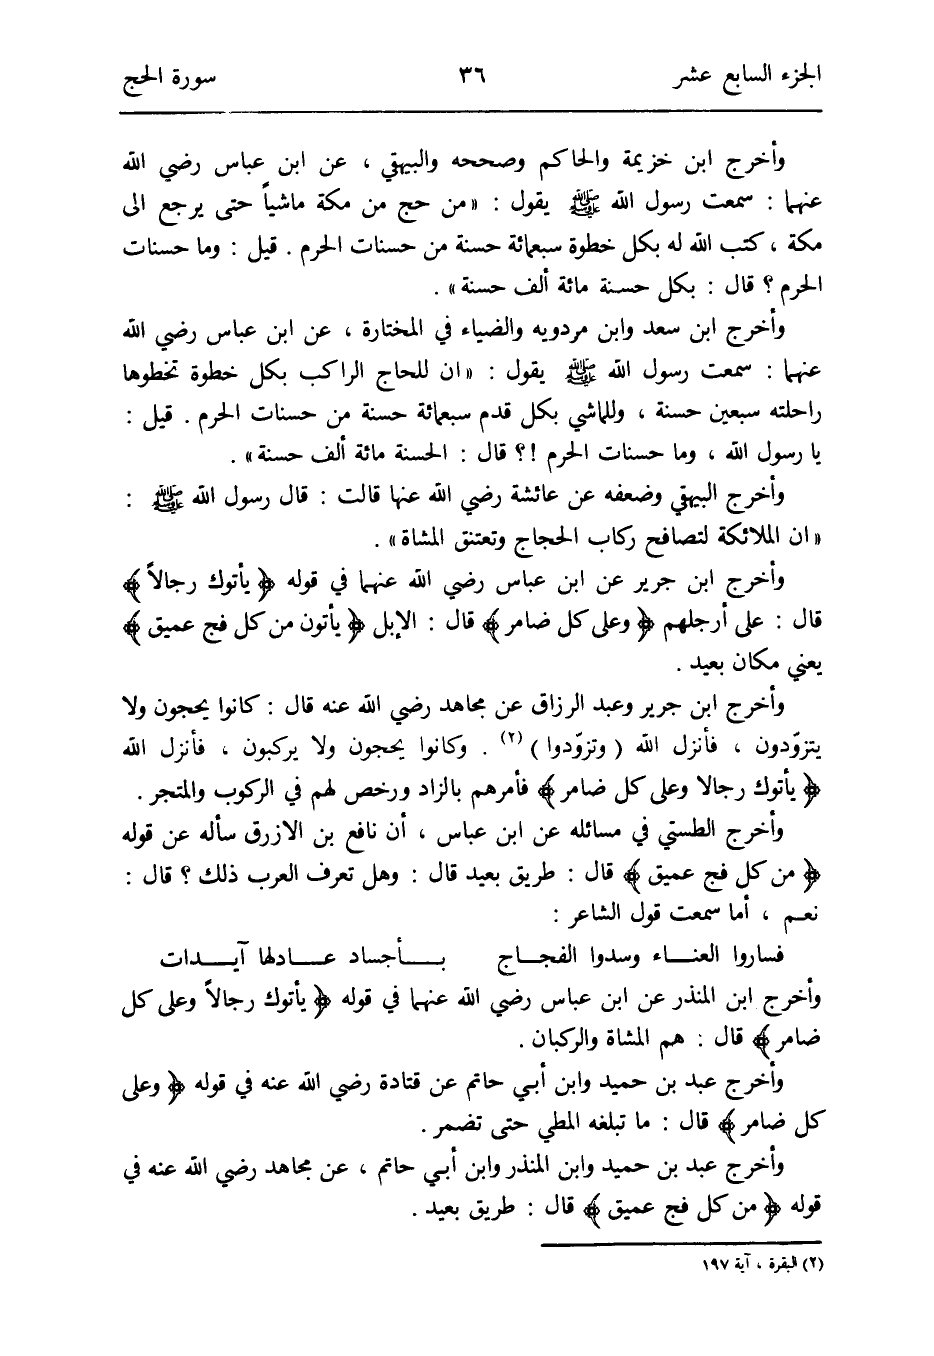 الجزء السابع عشر ٣٦ سورة الحج
وأخرج ابن خزيمة والحاكم وصححه والبيهقي ، عن ابن عباس رضي الله
عنهما : سمعت رسول الله ﷺ يقول : «من حج من مكة ماشياً حتى يرجع الى
مكة ، كتب الله له بكل خطوة سبعمائة حسنة من حسنات الحرم . قيل : وما حسنات
الحرم ؟ قال : بكل حسنة مائة ألف حسنة» .
وأخرج ابن سعد وابن مردويه والضياء في المختارة ، عن ابن عباس رضي الله
عنهما : سمعت رسول الله ﷺ يقول : «ان للحاج الراكب بكل خطوة تخطوها
راحلته سبعين حسنة ، وللماشي بكل قدم سبعمائة حسنة من حسنات الحرم . قيل :
يا رسول الله ، وما حسنات الحرم !؟ قال : الحسنة مائة ألف حسنة» .
وأخرج البيهقي وضعفه عن عائشة رضي الله عنها قالت : قال رسول الله ﷺ :
«ان الملائكة لتصافح ركاب الحجاج وتعتنق المشاة» .
وأخرج ابن جرير عن ابن عباس رضي الله عنهما في قوله ﴿ يأتوك رجالاً ﴾
قال : على أرجلهم ﴿ وعلى كل ضامر ﴾ قال : الإبل ﴿ يأتون من كل فج عميق ﴾
يعني مكان بعيد .
وأخرج ابن جرير وعبد الرزاق عن مجاهد رضي الله عنه قال : كانوا يحجون ولا
يتزوّدون ، فأنزل الله ( وتزوّدوا ) (٢) . وكانوا يحجون ولا يركبون ، فأنزل الله
﴿ يأتوك رجالا وعلى كل ضامر ﴾ فأمرهم بالزاد ورخص لهم في الركوب والمتجر .
وأخرج الطستي في مسائله عن ابن عباس ، أن نافع بن الازرق سأله عن قوله
﴿ من كل فج عميق ﴾ قال : طريق بعيد قال : وهل تعرف العرب ذلك ؟ قال :
نعـم ، أما سمعت قول الشاعر :
فساروا العنـــاء وسدوا الفجـــاج بـــأجساد عـــادلها آيـــدات
وأخرج ابن المنذر عن ابن عباس رضي الله عنهما في قوله ﴿ يأتوك رجالاً وعلى كل
ضامر ﴾ قال : هم المشاة والركبان .
وأخرج عبد بن حميد وابن أبـي حاتم عن قتادة رضي الله عنه في قوله ﴿ وعلى
كل ضامر ﴾ قال : ما تبلغه المطي حتى تضمر .
وأخرج عبد بن حميد وابن المنذر وابن أبـي حاتم ، عن مجاهد رضي الله عنه في
قوله ﴿ من كل فج عميق ﴾ قال : طريق بعيد .
(٢) البقرة ، آية ١٩٧